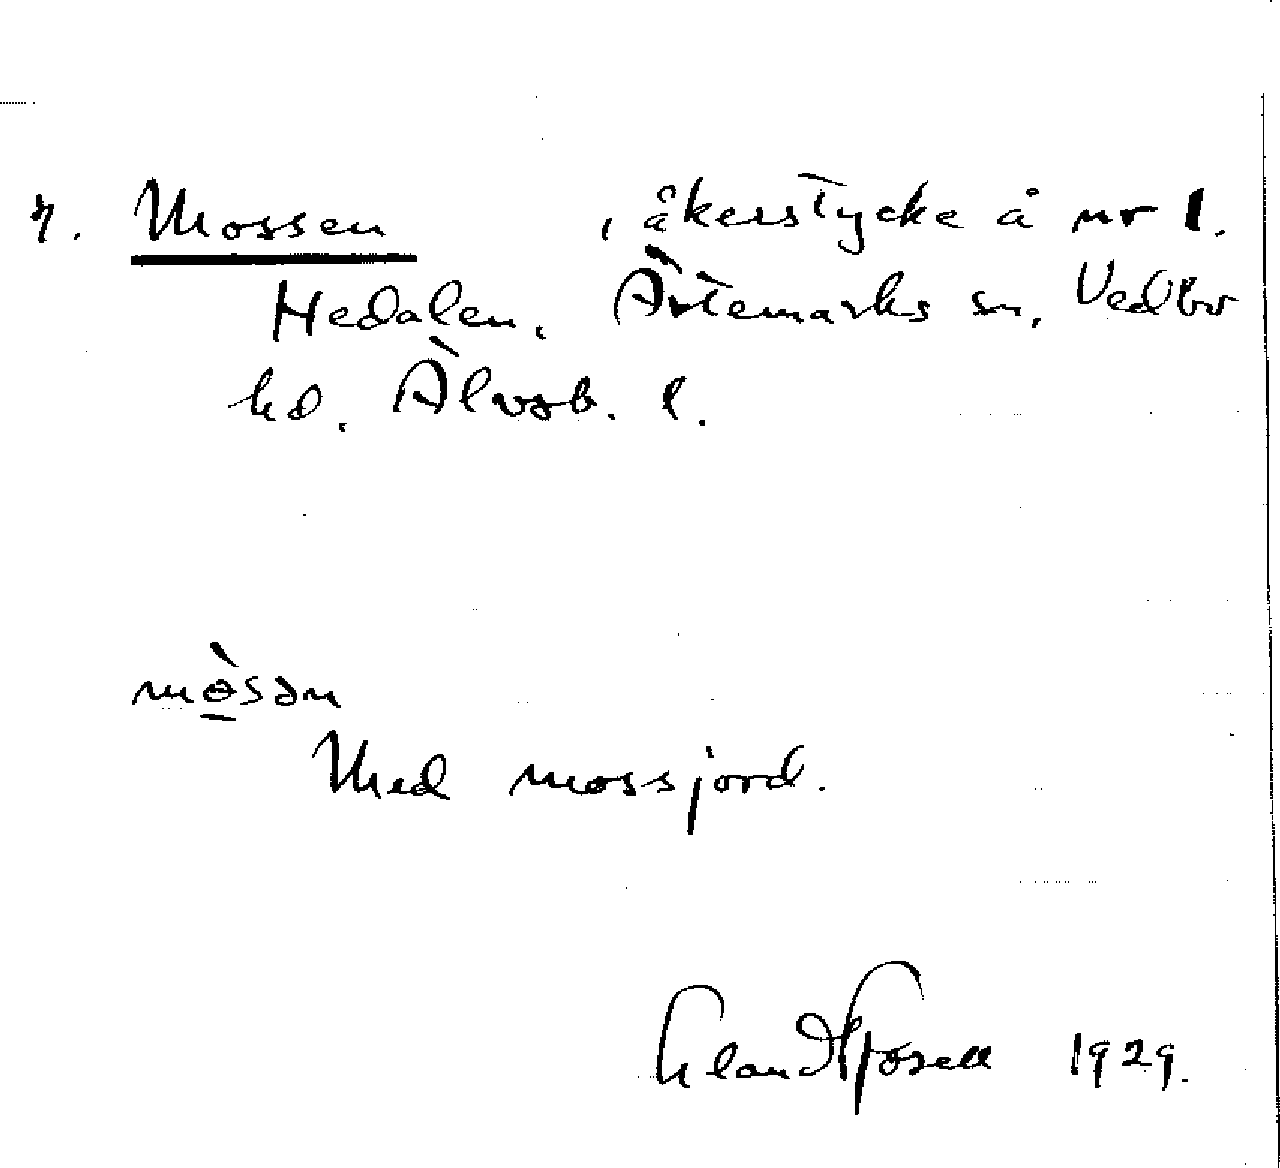 7. Mossen , åkerstycke å nr 1.
Hedalen, Ärtemarks sn, Vedbo
hd. Älvsb. l.
mòsən
Med mossjord.
1929.